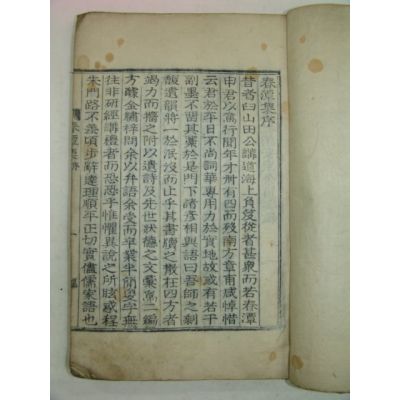 春潭集序
昔者臼山田公講道海上負笈從者甚衆而若春潭
申君以篤行聞年才卅有四而歿南方章甫咸悼惜
云君於平日不尚詞華專用力於實地故或有若干
副墨不留其藁於是門下諸彦相與語曰吾師之剩
馥遺韻將一於泯沒而止乎其書牘之散在四方者
竭力而搜之附以遺詩及先世狀德之文彙爲一編
方將金繡梓問余以弁語余受而卒業半簡隻字無
往非研經講禮者而恐恐乎惟懼異說之所眩惑程
朱門路不錯項步辭達理順平正切實儘儒家語也
春潭集序